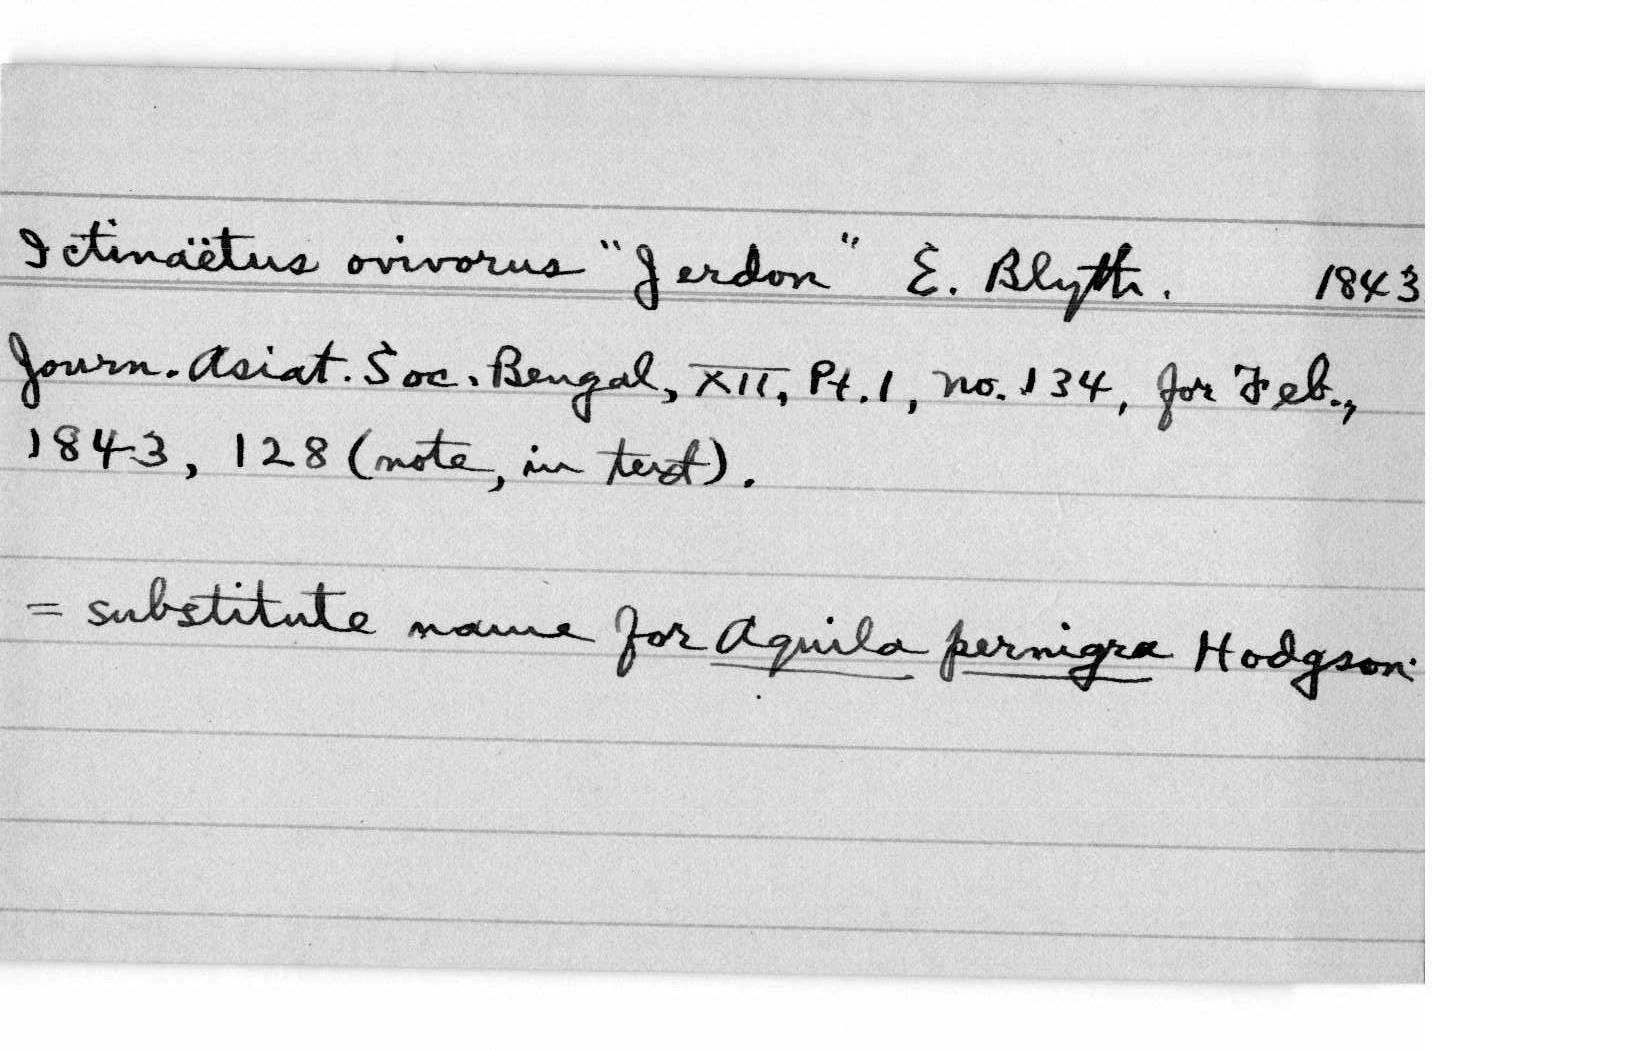 Ictinaëtus ovivorus "Jerdon" E. Blyth. 1843
Journ. Asiat. Soc. Bengal, XII, Pt. 1, no. 134, for Feb.,
1843, 128 (note, in text).
= substitute name for Aquila pernigra Hodgson.